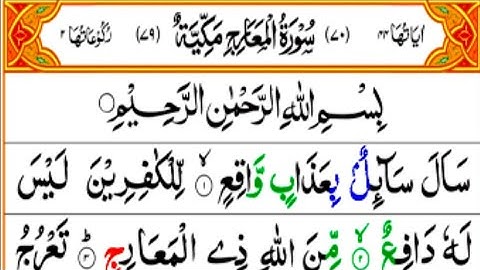 اٰیاتها ٤٤ (٧٠) سُوْرَةُ الْمَعَارِجِ مَكِّيَّةٌ (٧٩) رُكُوْعَاتُهَا ٢
بِسْمِ اللّٰهِ الرَّحْمٰنِ الرَّحِيْمِ ۝
سَاَلَ سَآئِلٌۢ بِعَذَابٍ وَّاقِعٍ ۙ‏﴿١﴾ لِّلْكٰفِرِيْنَ لَيْسَ
لَهٗ دَافِعٌ ۙ‏﴿٢﴾ مِّنَ اللّٰهِ ذِى الْمَعَارِجِ ؕ‏﴿٣﴾ تَعْرُجُ